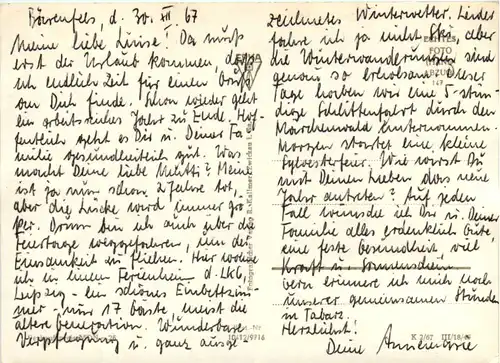 Bärenfels, d. 30. XII 67
Meine liebe Luise! Da muß
erst der Urlaub kommen, daß
ich endlich Zeit für einen Gruß
an Dich finde. Schon wieder geht
ein arbeitsreiches Jahr zu Ende. Hof-
fentlich geht es Dir u. Deiner Fa-
milie gesundheitlich gut. Was
macht Deine liebe Mutti? Meine
ist ja nun schon 2 Jahre tot,
aber die Lücke wird immer grö-
ßer. Drum bin ich auch über die
Feiertage weggefahren, um der
Einsamkeit zu fliehen. Hier wohne
ich in einem Ferienheim d.
Leipzig - ein schönes Einbettzim-
mer - nur 17 Gäste, meist die
ältere Generation. Wunderbare
Verpflegung u. ganz ausge
zeichnetes Winterwetter. Leider
fahre ich ja nicht Ski, aber
die Winterwanderungen sind
genau so erholsam. Dieser
Tage haben wir eine 5-stün-
dige Schlittenfahrt durch den
Märchenwald unternommen.
Morgen startet eine kleine
Sylvesterfeier. Wie wirst Du
mit Deinen Lieben das neue
Jahr antreten? Auf jeden
Fall wünsche ich Dir u. Deiner
Familie alles erdenklich Gute
eine feste Gesundheit, viel
Kraft u. Sonnenschein
gern erinnere ich mich noch
unserer gemeinsamen Stunden
in Tabarz.
Herzlichst!
Deine Annemarie
ECHTES
FOTO
147
10/12/9716
K 2/67 III/18/